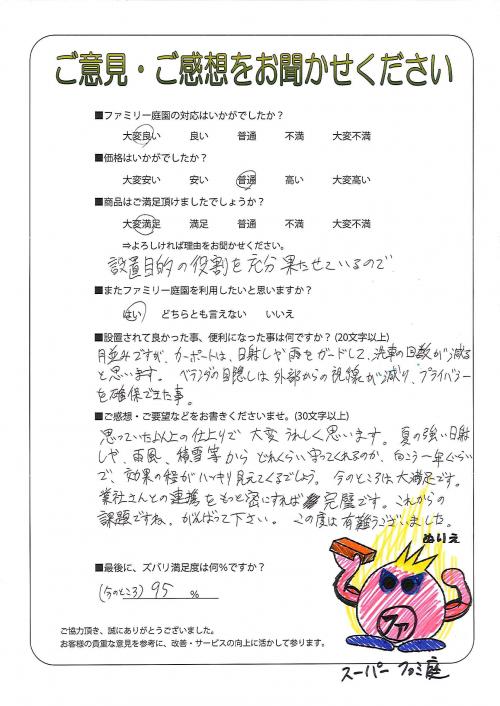 ご意見・ご感想をお聞かせください
■ファミリー庭園の対応はいかがでしたか？
大変良い　良い　普通　不満　大変不満
■価格はいかがでしたか？
大変安い　安い　普通　高い　大変高い
■商品はご満足頂けましたでしょうか？
大変満足　満足　普通　不満　大変不満
⇒よろしければ理由をお聞かせください。
設置目的の役割を充分果たせているので
■またファミリー庭園を利用したいと思いますか？
はい　どちらとも言えない　いいえ
■設置されて良かった事、便利になった事は何ですか？(20文字以上)
月並みですが、カーポートは、日射しや雨をガードして、洗車の回数が減る
と思います。ベランダの目隠しは外部からの視線が減り、プライバシー
を確保できた事。
■ご感想・ご要望などをお書きくださいませ。(30文字以上)
思っていた以上の仕上りで大変うれしく思います。夏の強い日射
しや、雨風、積雪等からどれくらい守ってくれるのか、向こう一年ぐらい
で、効果の程がハッキリ見えてくるでしょう。今のところは大満足です。
業社さんとの連携をもっと密にすれば完璧です。これからの
課題ですね。がんばって下さい。この度は有難うございました。
ぬりえ
■最後に、ズバリ満足度は何％ですか？
(今のところ) 95 %
ファ
ご協力頂き、誠にありがとうございました。
お客様の貴重な意見を参考に、改善・サービスの向上に活かして参ります。
スーパー ファミ庭